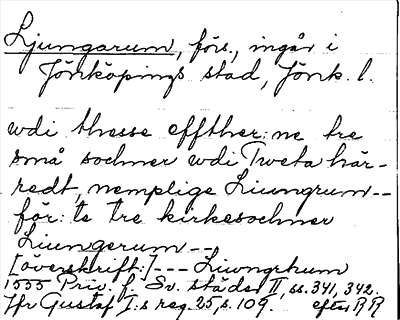 Ljungarum, förs., ingår i
Jönköpings stad, Jönk. l.
wdi thesse effther:ne tre
små sochner wdi Tweta här-
redt, nemplige Liungrum--
för:te tre kirkesochner
Liungerum--
[överskrift:]--- Liwngrhum
1555 Priv. f. Sv. städer II, ss. 341, 342.
Jfr Gustaf I:s reg. 25, s. 109. efter RR